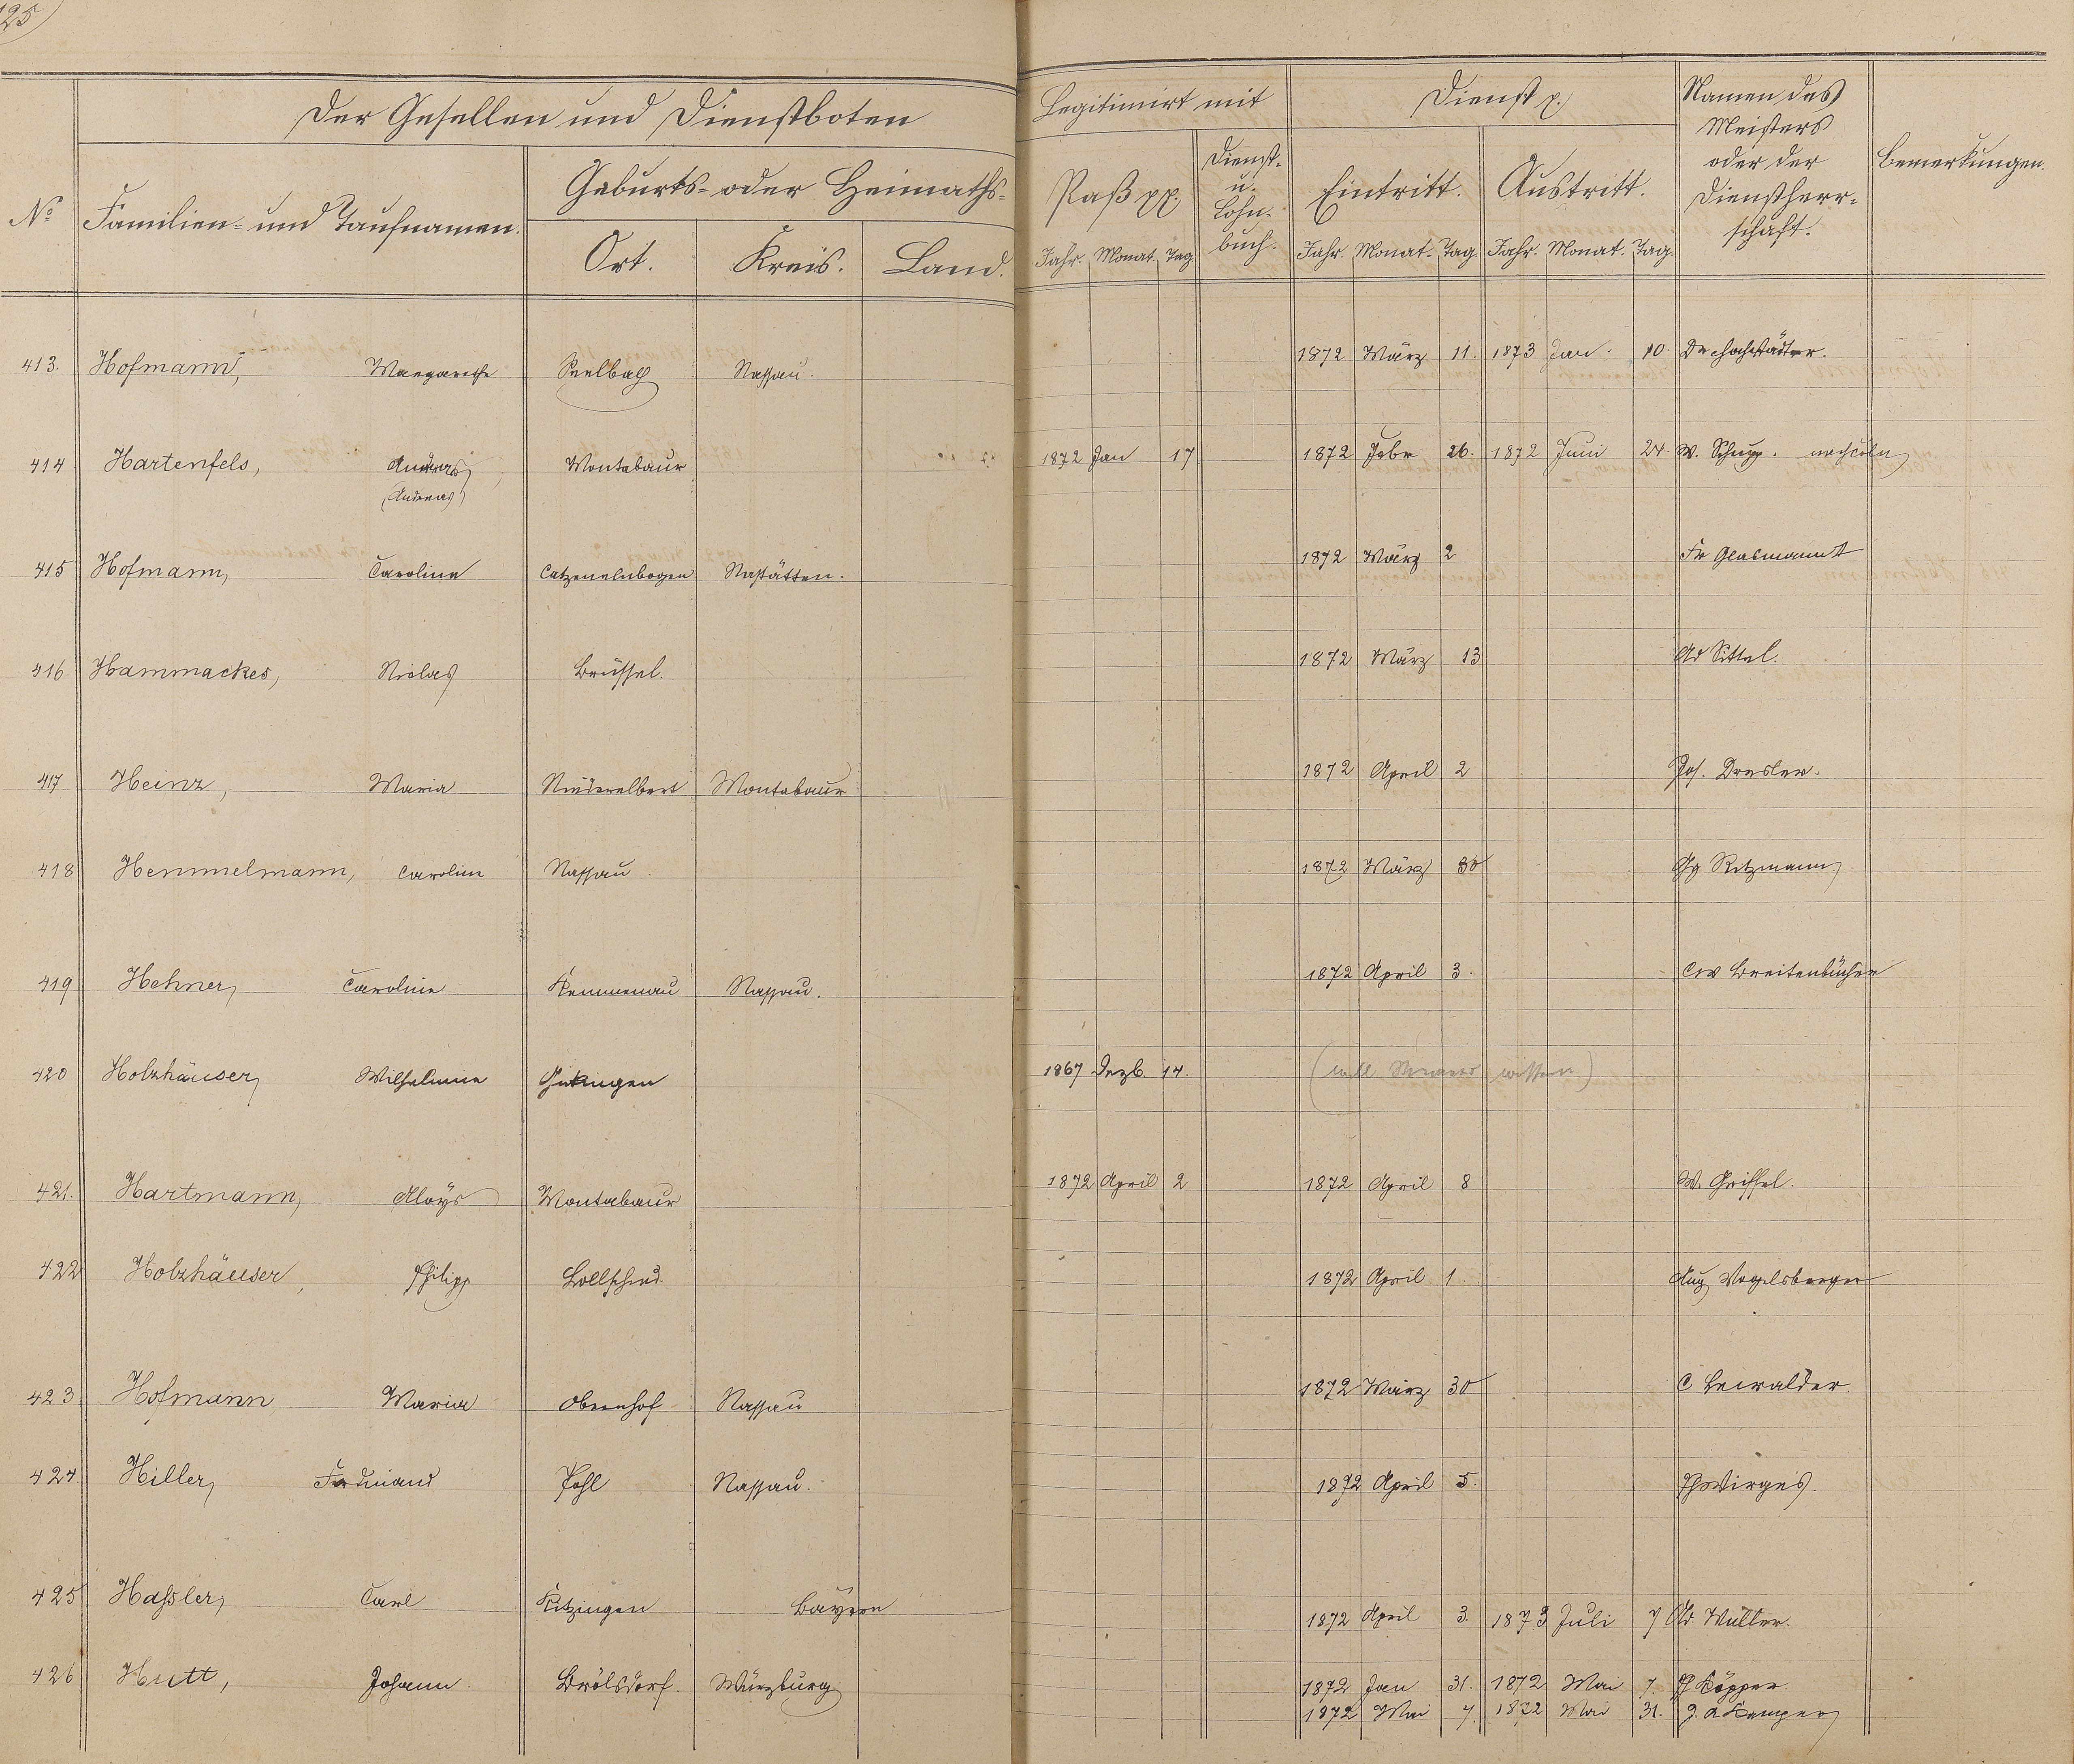 125
Der Gesellen und Dienstboten
Legitimirt mit
Dienst p.
Namen des
Meisters
oder der
Dienstherr-
schaft.
Bemerkungen.
No
Familien- und Taufnamen.
Geburts- oder Heimaths-
Ort. Kreis. Land.
Paß pp.
Jahr. Monat. Tag
Dienst-
u.
Lohn-
buch.
Eintritt. Austritt.
Jahr. Monat. Tag. Jahr. Monat. Tag.
413. Hofmann, Margarethe Seelbach Nassau. 1872 März 11. 1873 Jan. 10. Dr Hochstädter.
414 Hartenfels, Andreas Montabaur 1872 Jan 17 1872 Febr 26. 1872 Juni 24 W. Schupp. nach Cöln
(Andreas)
415 Hofmann, Caroline Catzenelnbogen Nastätten. 1872 März 2 Fr Glasmann
416 Hammackes, Niclas Brüssel. 1872 März 13 Ad Sittel.
417 Heinz, Maria Niederelbert Montabaur 1872 April 2 Jos. Dresler.
418 Hemmelmann, Caroline Nassau 1872 März 30 Gg Ritzmann
419 Hehner, Caroline Kemmenau Nassau. 1872 April 3. Breitenbücher
420 Holzhäuser, Wilhelmine 1867 Dezb. 14. (will
421. Hartmann, Aloys Montabaur 1872 April 2 1872 April 8 W. Griffel.
422 Holzhäuser, Philipp Lollschied 1872 April 1. Aug Vogelsberger
423 Hofmann Maria Obernhof Nassau 1872 März 30 C Leiwalder.
424. Hiller, Ferdinand Pohl Nassau. 1872 April 5. Ph Wirges.
425 Haßler, Carl Kitzingen Bayern 1872 April 3. 1873 Juli 7 Ad. Müller.
426 Hutt, Johann Brölsdorf. Würzburg 1872 Jan 31. 1872 Mai 7. Ph Köpper.
1872 Mai 7. 1872 Mai 31. J. A Kemper